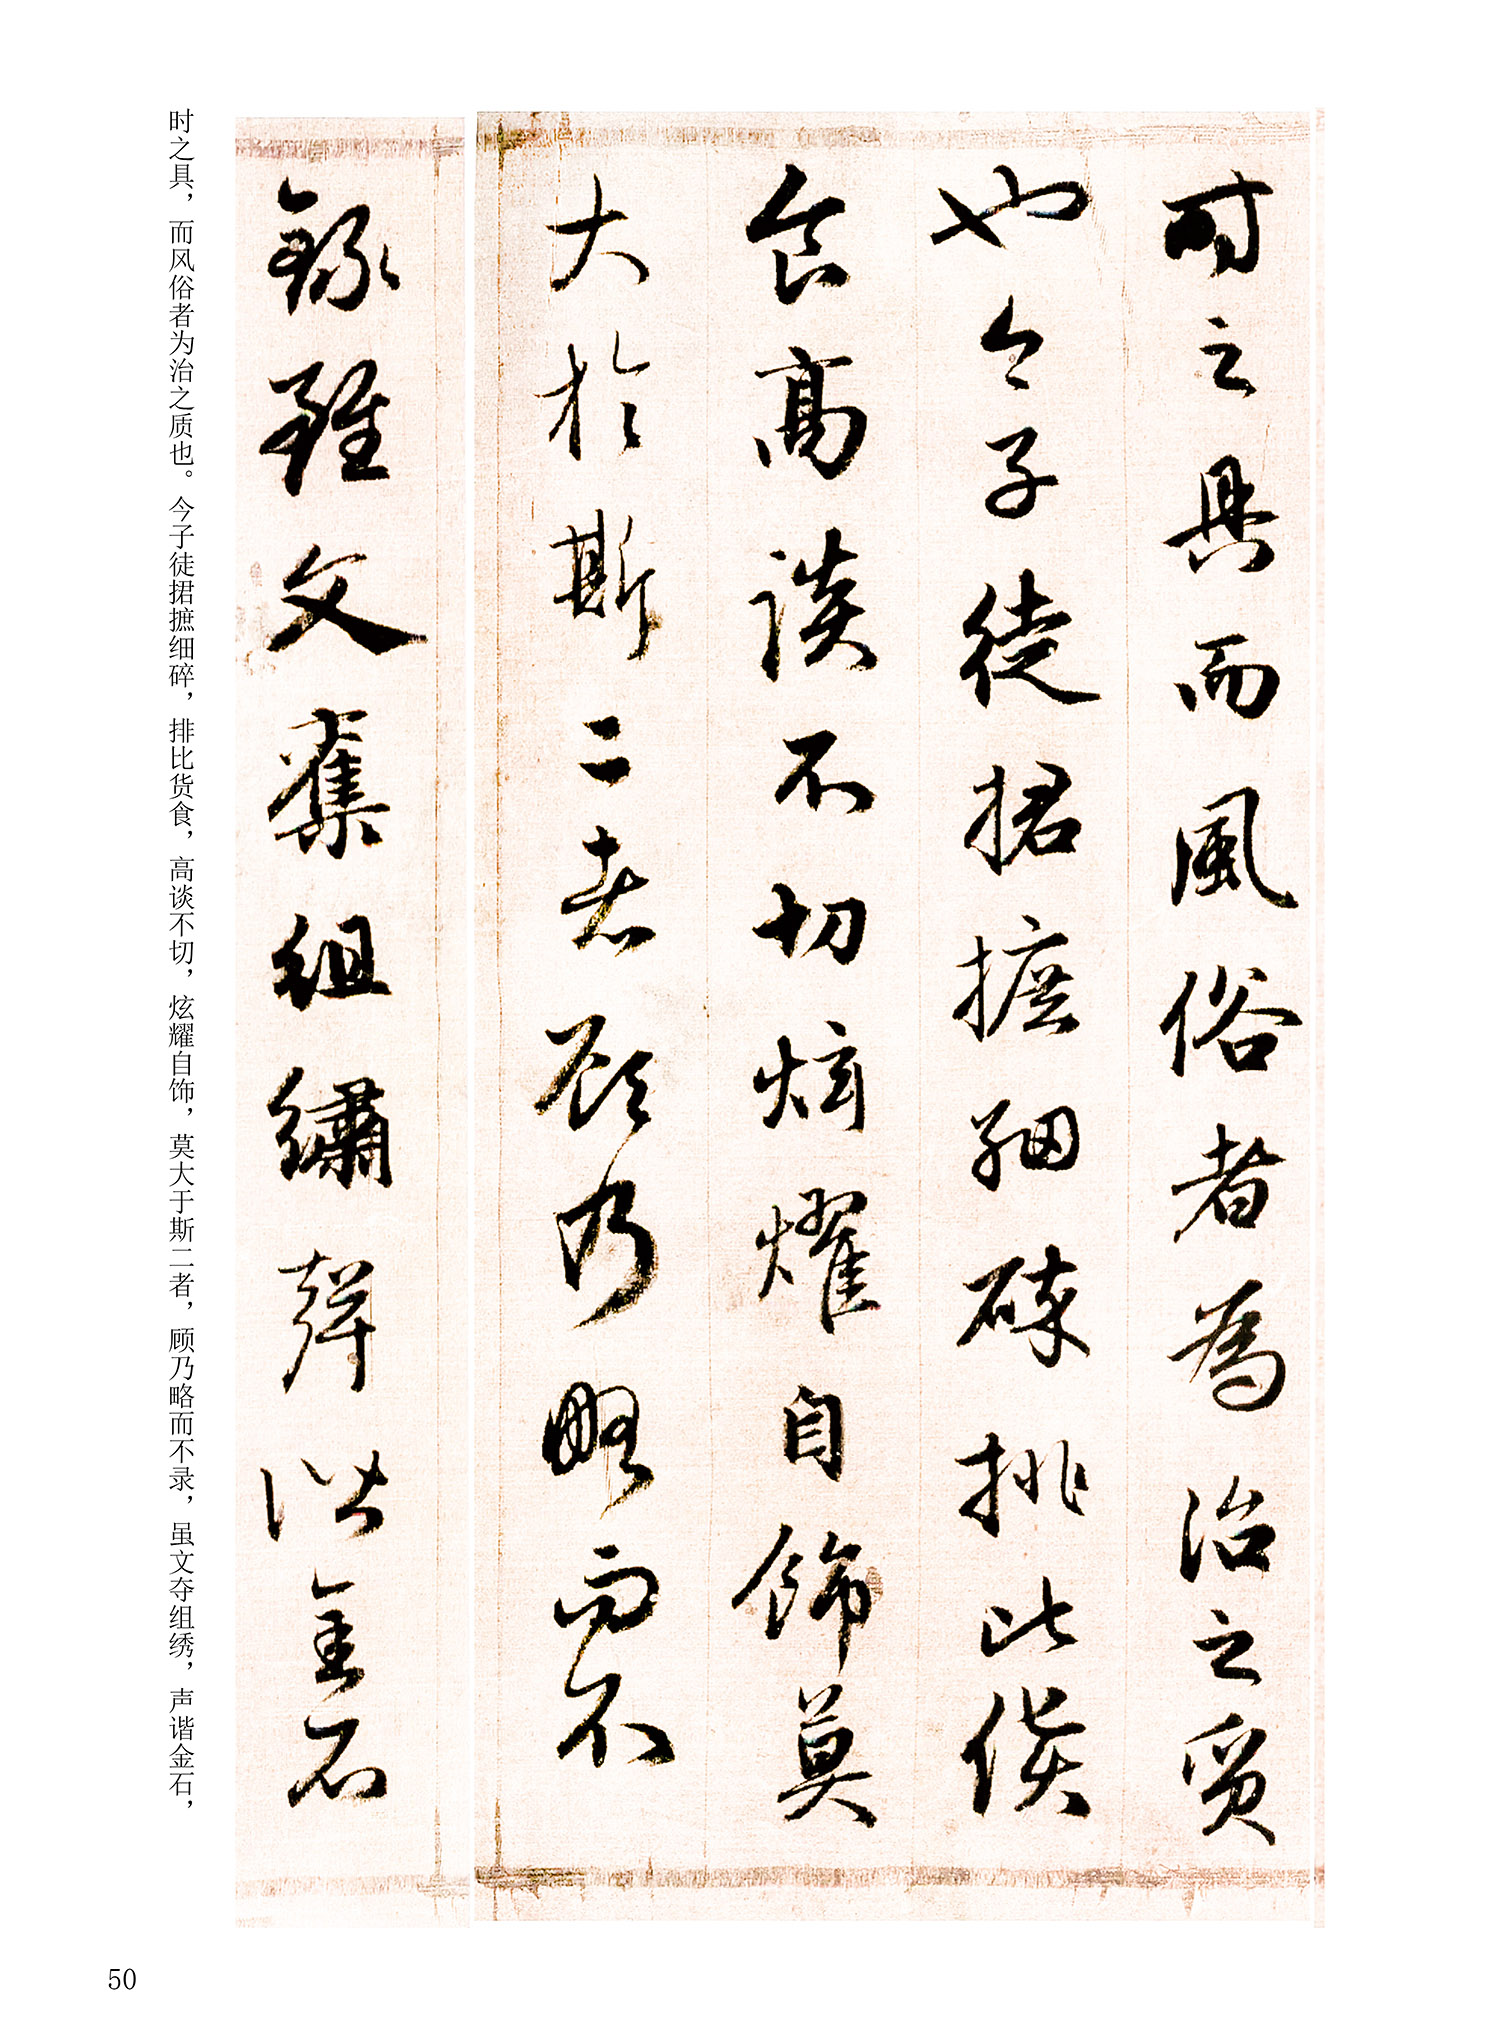 时之具而風俗者為治之質
也今子徒捃摭細碎排比貨
食高談不切炫耀自飾莫
大於斯二者顧乃略而不
錄雖文奪組繡聲諧金石
时之具，而风俗者为治之质也。今子徒捃摭细碎，排比货食，高谈不切，炫耀自饰，莫大于斯二者，顾乃略而不录，虽文夺组绣，声谐金石，
50